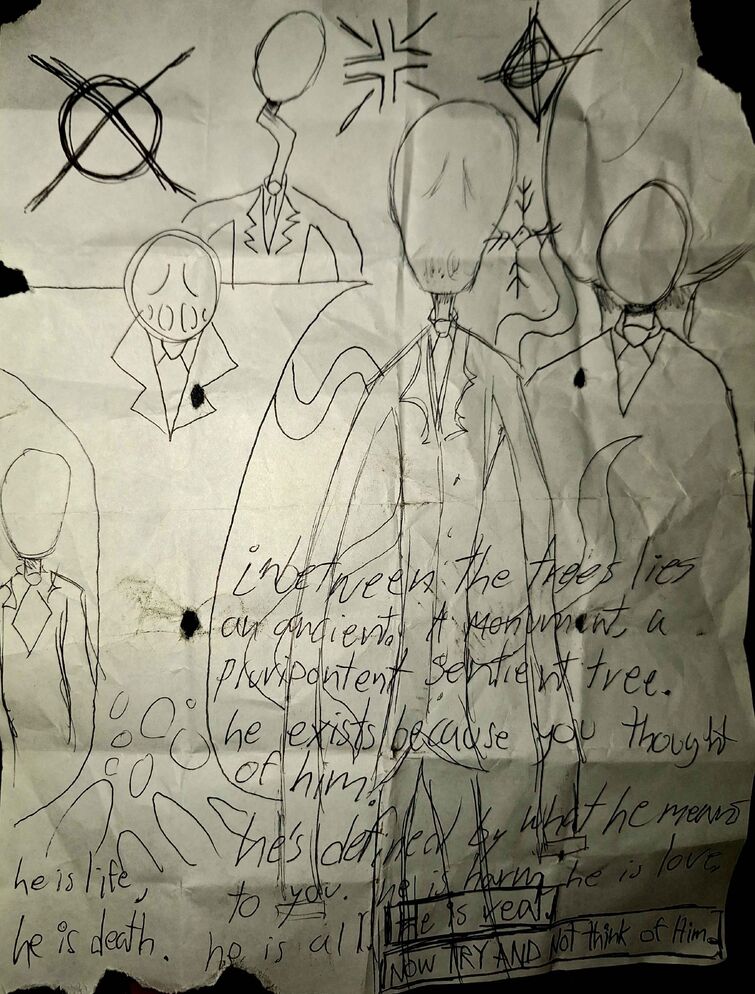 inbetween the trees lies
an ancient. A monument, a
pluripontent sentient tree.
he exists because you thought
of him.
he's defined by what he means
to you. he is harm, he is love,
he is life,
he is death. he is all. He is real.
NOW TRY AND Not think of Him.